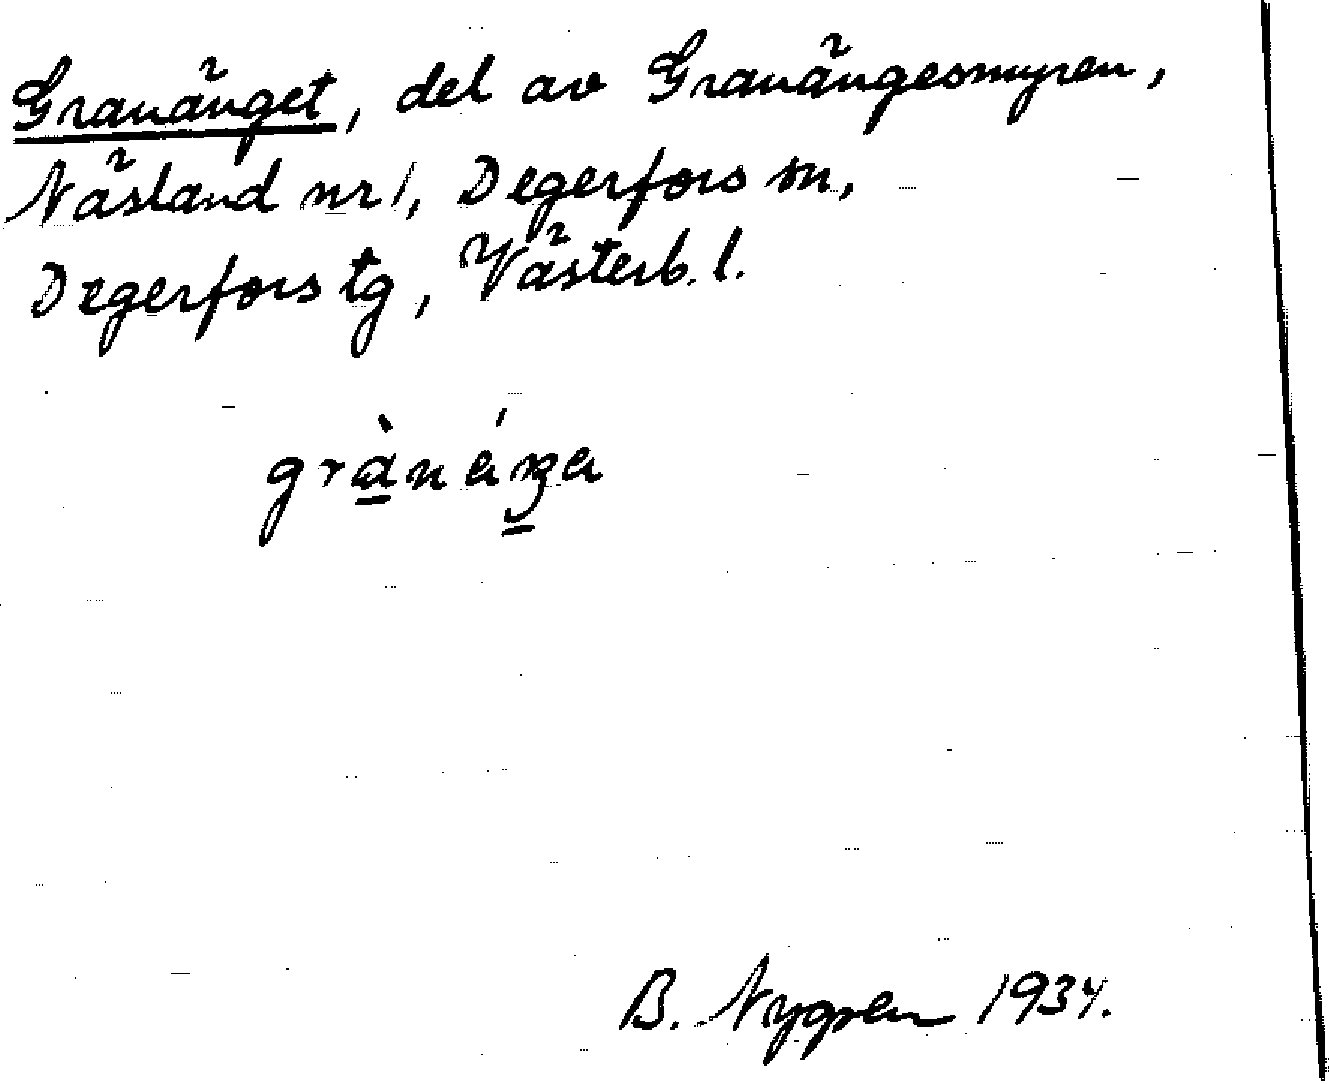 Granänget, del av Granängesmyren,
Näsland nr 1, Degerfors sn,
Degerfors tg, Västerb. l.
B. Nygren 1934.